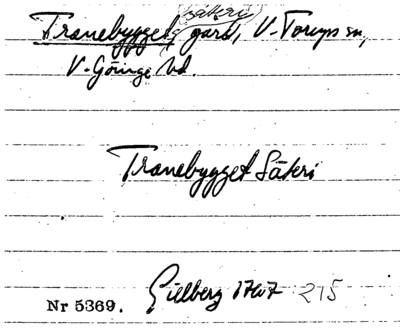 (säteri)
Tranebygget, gård, V-Torups sn,
V-Göinge hd.
Tranebygget Säteri
Gillberg 1767 215
Nr 5369.